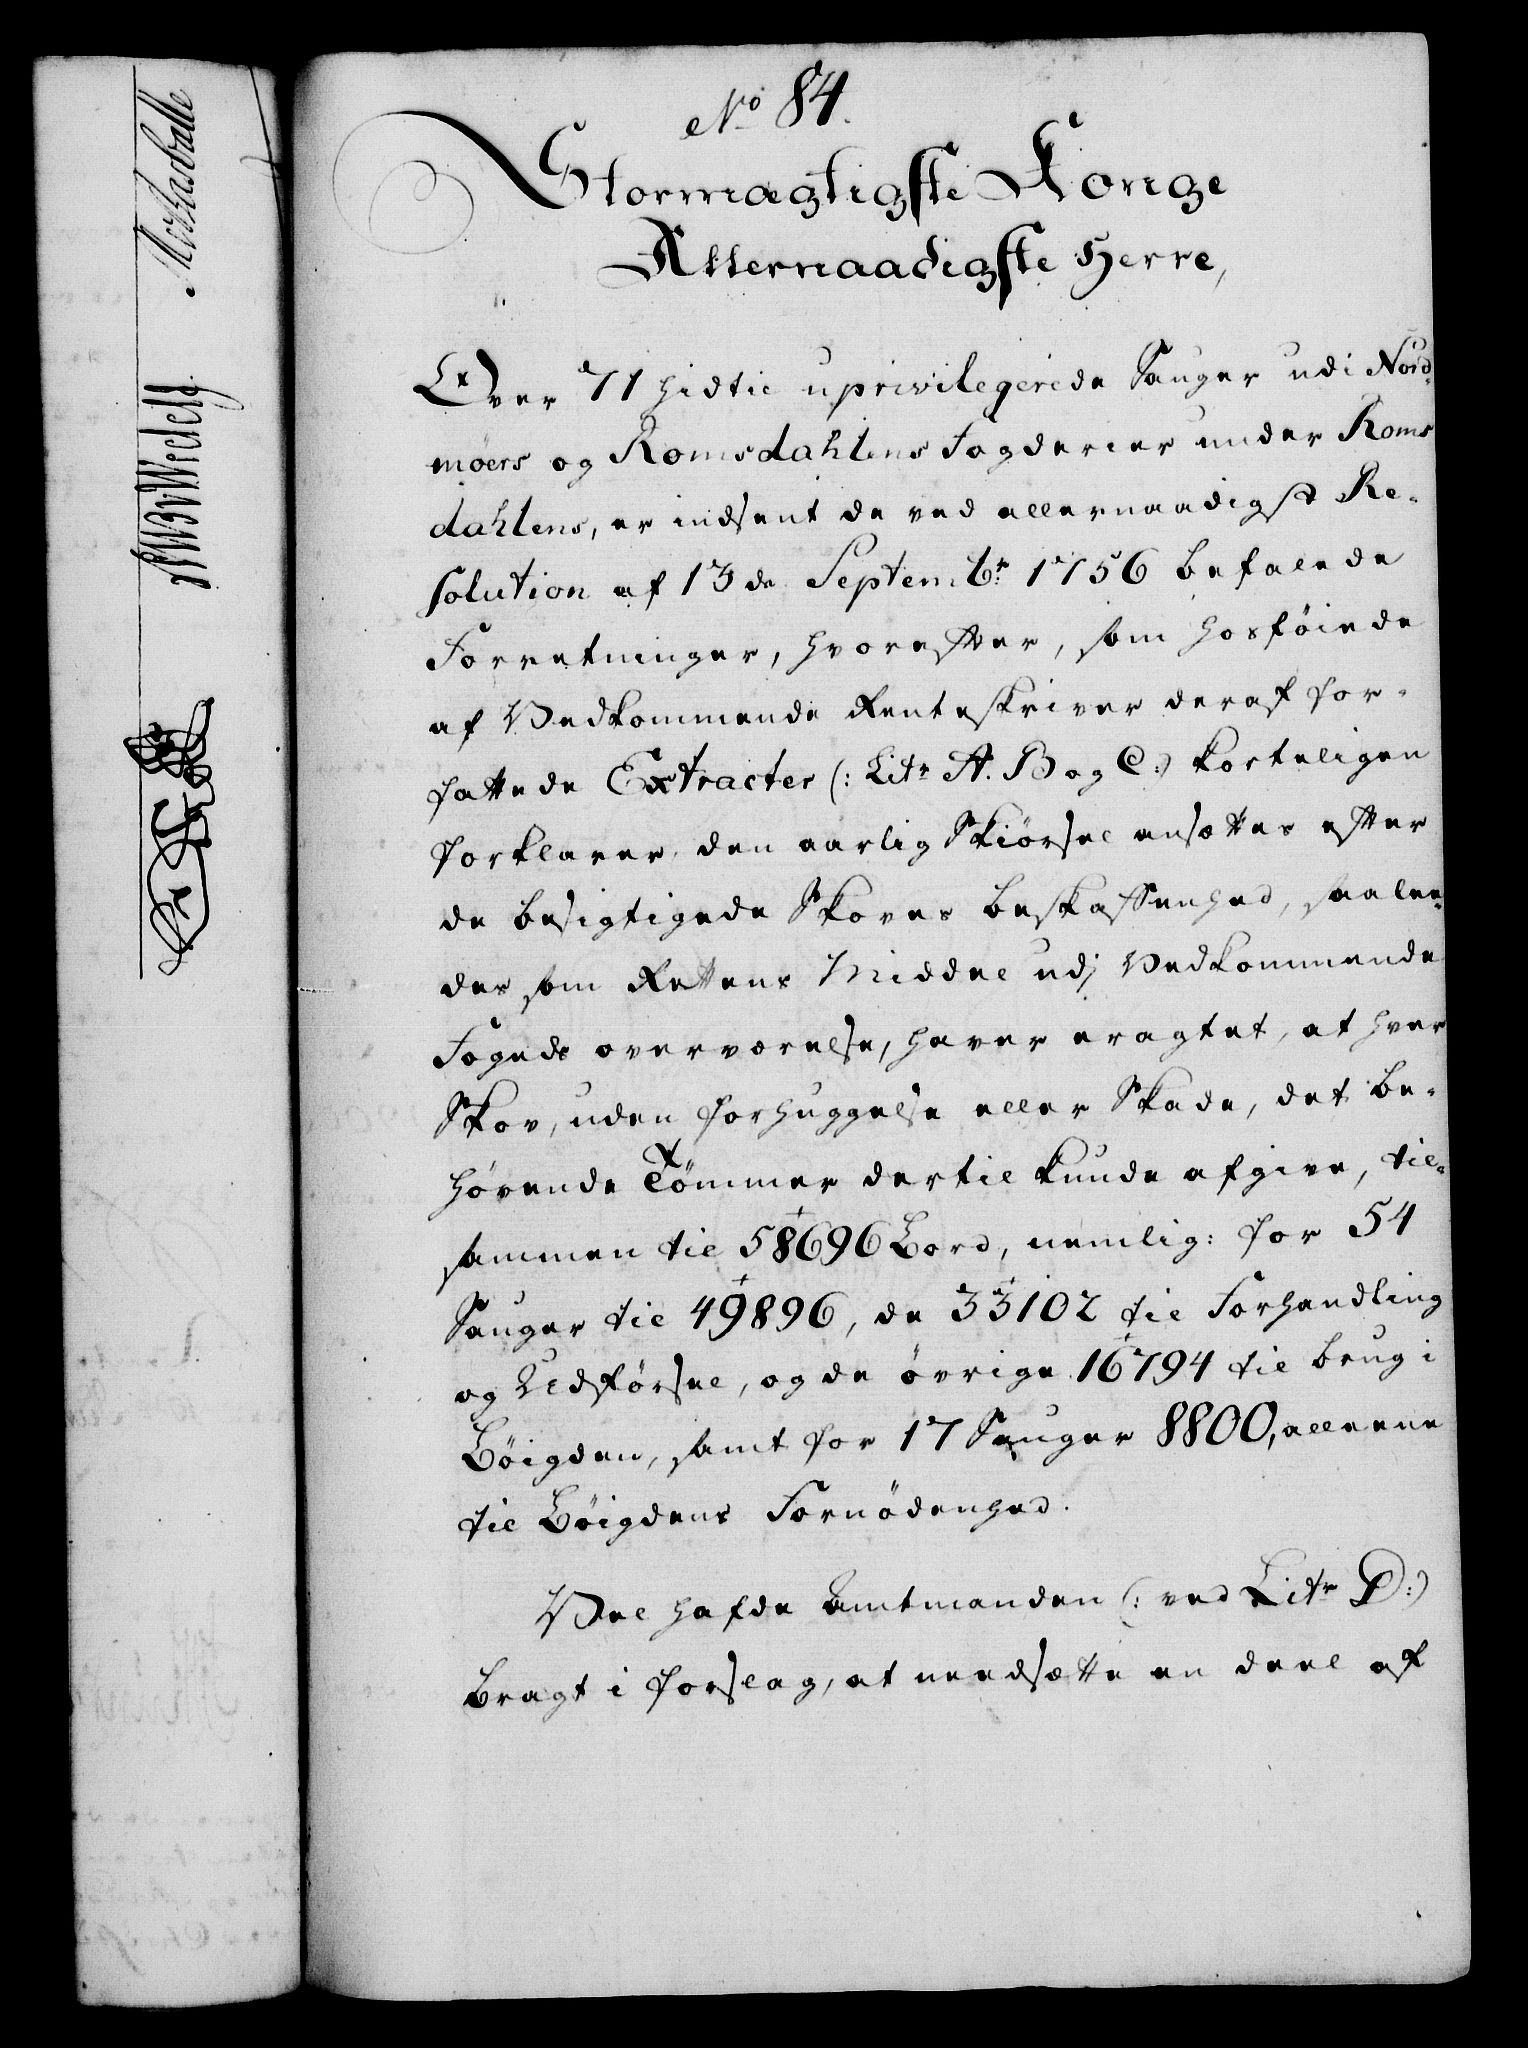 No 84.
Stormægtigste Konge
Allernaadigste Herre,
Over 71 hidtil uprivilegerede Sauger udi Nord-
møers og Romsdahlens Fogderier under Roms
dahlens, er indsent de ved allernaadigst Re-
solution af 13de Septembr: 1756 befalede
Forretninger, hvorefter, som hosføiede
af Vedkommende Renteskriver deraf for-
fattede Extracter (: Litr A. B og C:) korteligen
forklarer, den aarlig Skiørsel ansættes efter
de besigtigede Skoves beskaffenhed, saalee-
des som Rettens Middel udj Vedkommende
Fogeds overværelse, haver eragtet, at hver
Skov, uden forhuggelse eller Skade, det be-
høvende Tømmer dertil kunde afgive, til-
sammen til 58696 Bord, nemlig: for 54
Sauger til 49896, de 33102 til Forhandling
og Udførsel, og de øvrige 16794 til brug i
Bøigden, samt for 17 Sauger 8800, alleene
til Bøigdens Fornødenhed.
Vel hafde Amtmanden (: ved Litr D:)
bragt i forslag, at needsætte en deel af